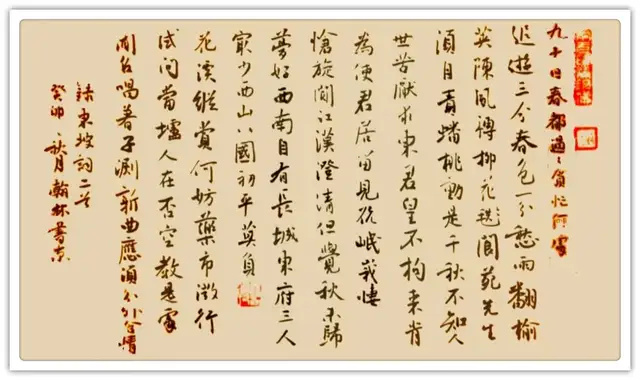 九十日春都過了貪忙何處
追遊三分春色一分愁雨翻榆
莢陣風轉柳花毬閬苑先生
須自責蟠桃動是千秋不知人
世苦厭求東君皇不拘束肯
為使君居留見說岷峨悽
愴旋聞江漢澄清但覺秋來歸
夢好西南自有長城東府三人
最少西山八國初平莫負
花溪縱賞何妨藥市微行
試問當壚人在否空教是處
聞名唱著子淵新曲應須分外含情
錄東坡詞二首
癸卯秋月翰林書